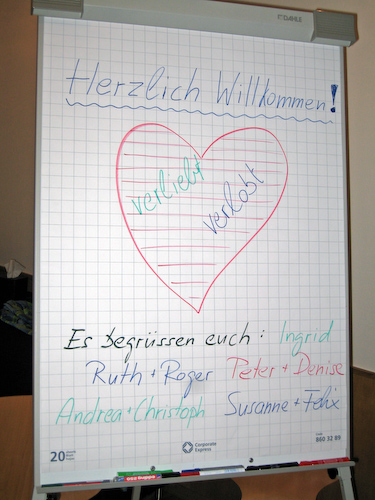 DAHLE
Herzlich Willkommen!
verliebt
verlobt
Es begrüssen euch: Ingrid
Ruth + Roger Peter + Denise
Andrea + Christoph Susanne + Felix
20
Corporate Express
860 32 89